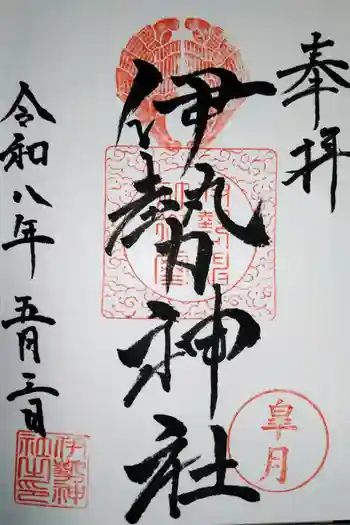 奉拝
伊勢神社
皐月
令和八年五月三日
伊勢神
社之印